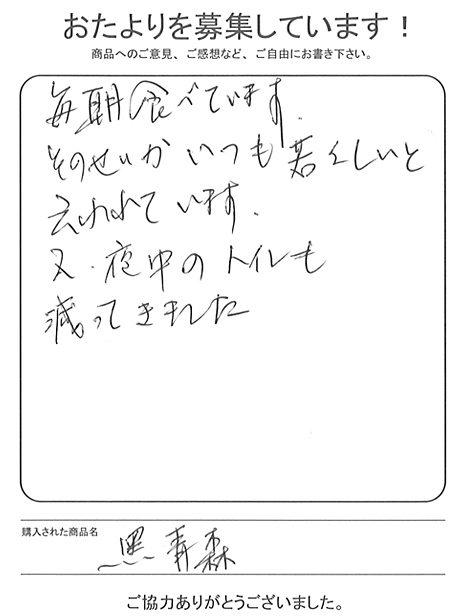 おたよりを募集しています！
商品へのご意見、ご感想など、ご自由にお書き下さい。
毎朝食べています.
そのせいか いつも若々しいと
云われています.
又.夜中のトイレも
減ってきました
購入された商品名
黒青森
ご協力ありがとうございました。